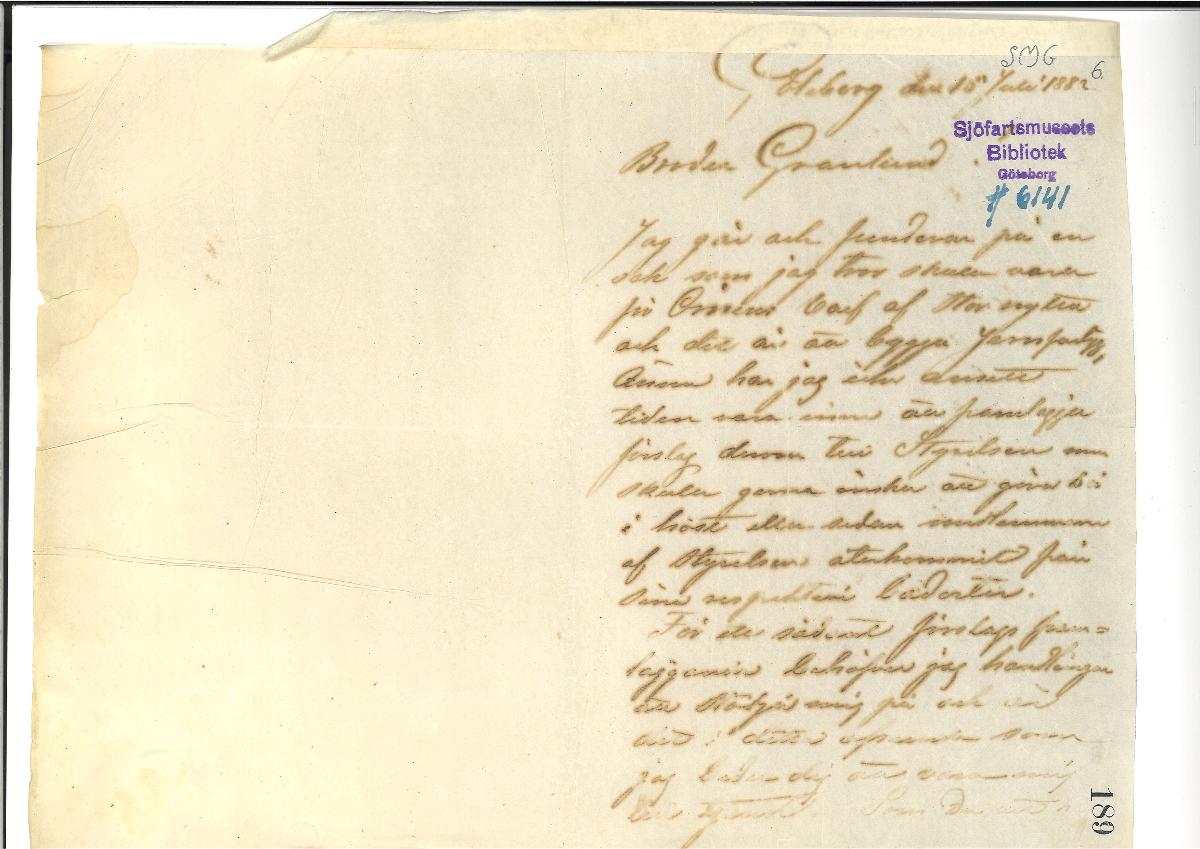 SMG
6.
Göteborg den 15" Juli 1882
Sjöfartsmuseets
Bibliotek
Göteborg
# 6141
Broder Granlund
Jag går och funderar på en
sak som jag tror skulle vara
för af stor nytta
och det är att bygga
Ännu har jag icke ansett
tiden vara inne att framlägga
förslag derom till Styrelsen men
skulle gerna önska att göra det
i höst eller sedan medlemmarne
af Styrelsen återkommit från
sina respektive badorter.
För ett sådant förslags fram=
läggande behöfver jag handlingar
att stödja mig på och är
det i detta som
jag beder dig att vara mig
till Som Du
189